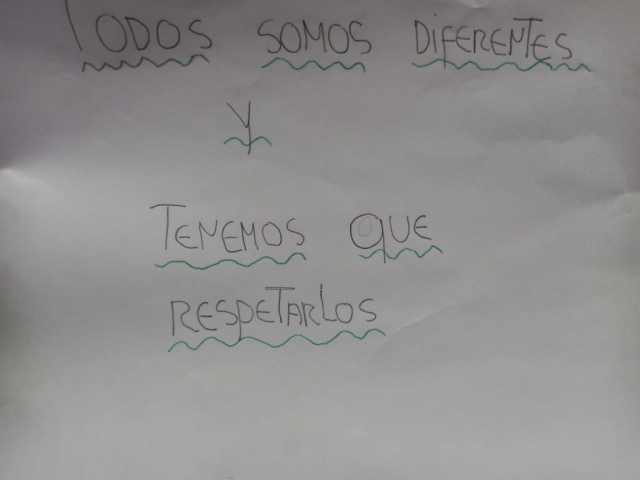 TODOS SOMOS DIFERENTES
Y
TENEMOS QUE
RESPETARLOS